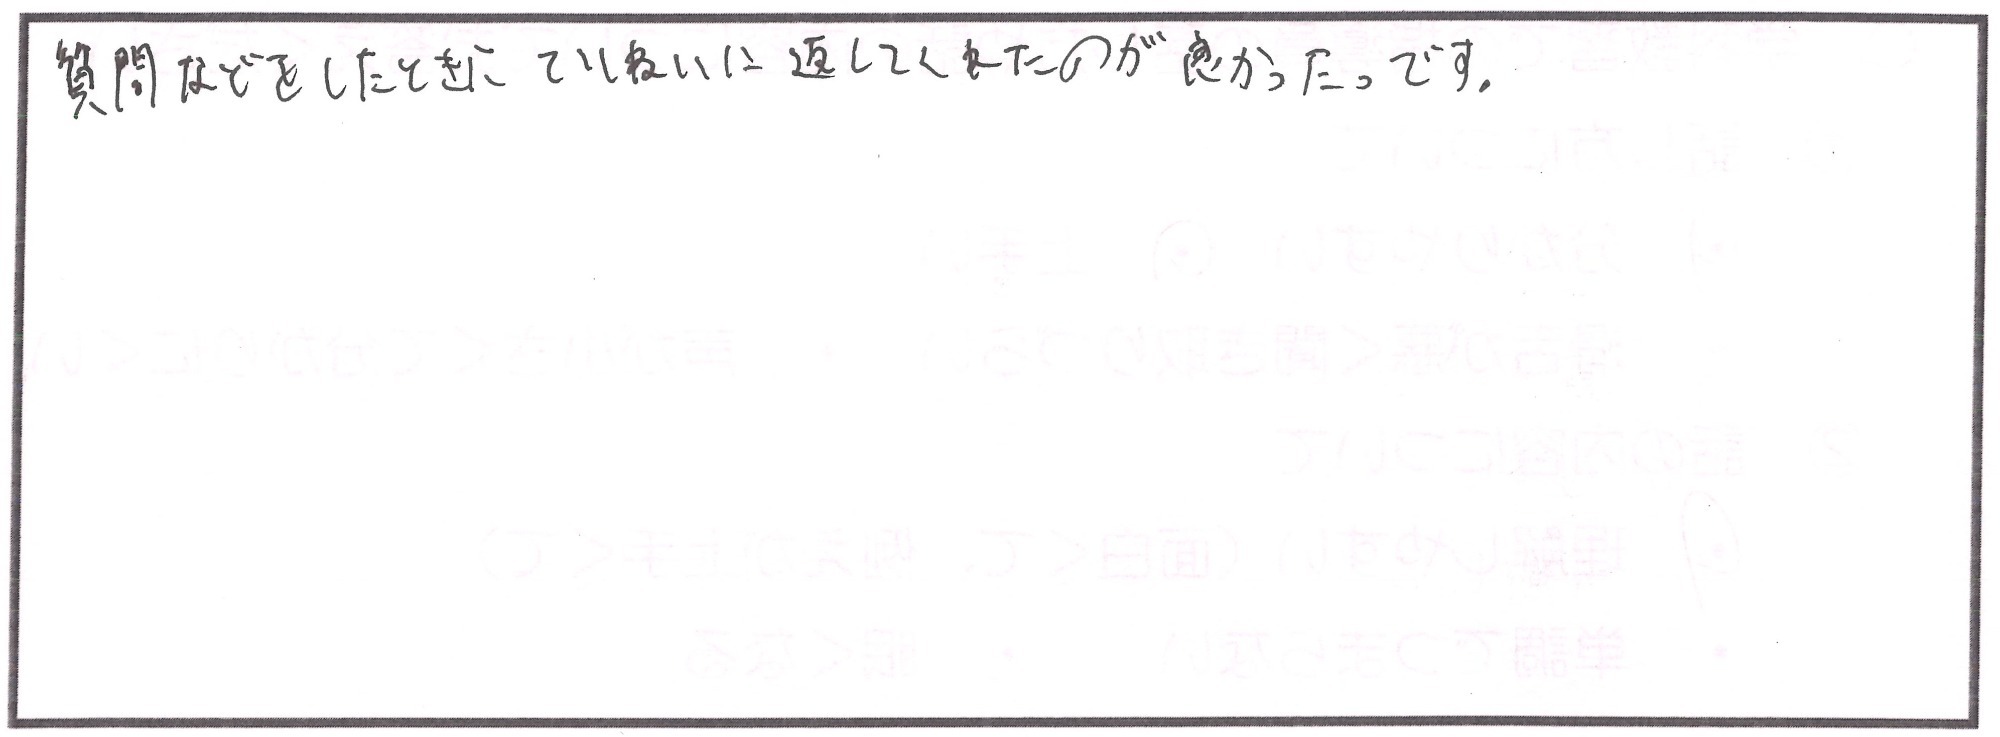 質問などをしたときに ていねいに 返してくれたのが 良かったっです。